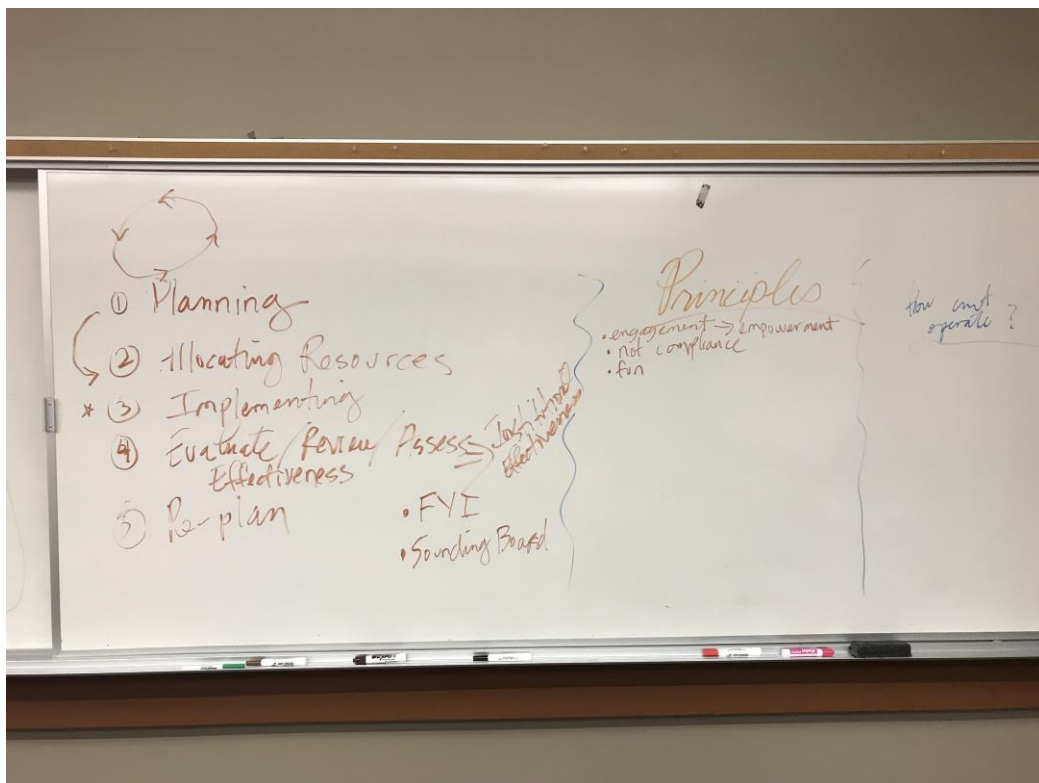 ① Planning
② Allocating Resources
* ③ Implementing
④ Evaluate/Review/Assess
Effectiveness
Institutional
Effectiveness
⑤ Re-plan
• FYI
• Sounding Board
Principles
• engagement → empowerment
• not compliance
• fun
How
operate?